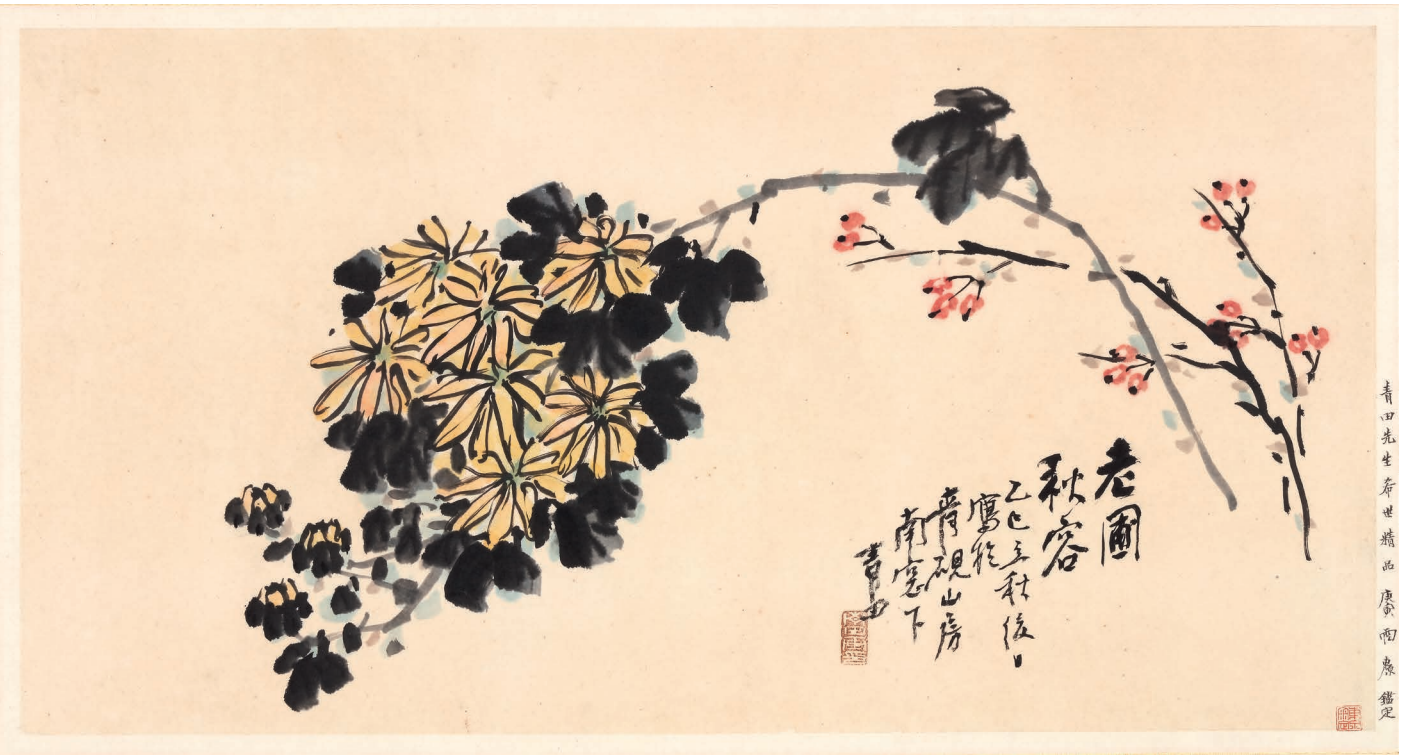 老圃
秋容
乙巳立秋後日
寫於
齊硯山房
南窓下
青田
青田先生希世精品 庚寅雨農鑑定